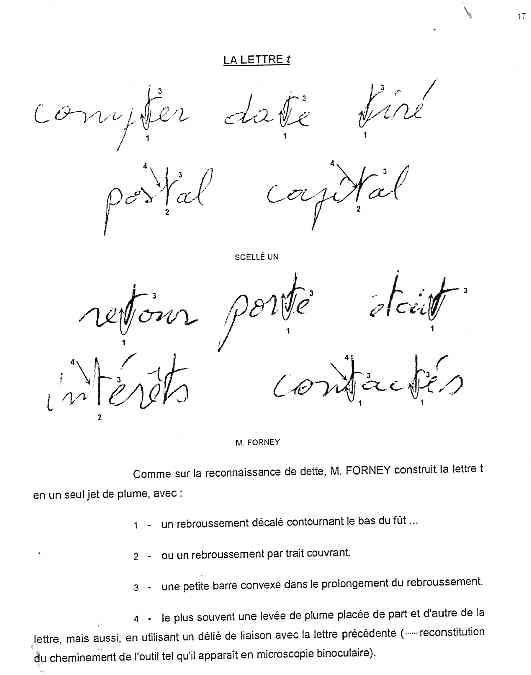 17
LA LETTRE t
compter date tiré
3 3 3
1 1 1
postal capital
4 3 4 3
2 2
SCELLÉ UN
retour porté était
3 3 3
1 1 1
intérêts contactés
4 3 4 3 3
2 1 1
M. FORNEY
Comme sur la reconnaissance de dette, M. FORNEY construit la lettre t
en un seul jet de plume, avec :
1 - un rebroussement décalé contournant le bas du fût ...
2 - ou un rebroussement par trait couvrant.
3 - une petite barre convexe dans le prolongement du rebroussement.
4 - le plus souvent une levée de plume placée de part et d'autre de la
lettre, mais aussi, en utilisant un délié de liaison avec la lettre précédente ( ---- reconstitution
du cheminement de l'outil tel qu'il apparaît en microscopie binoculaire).